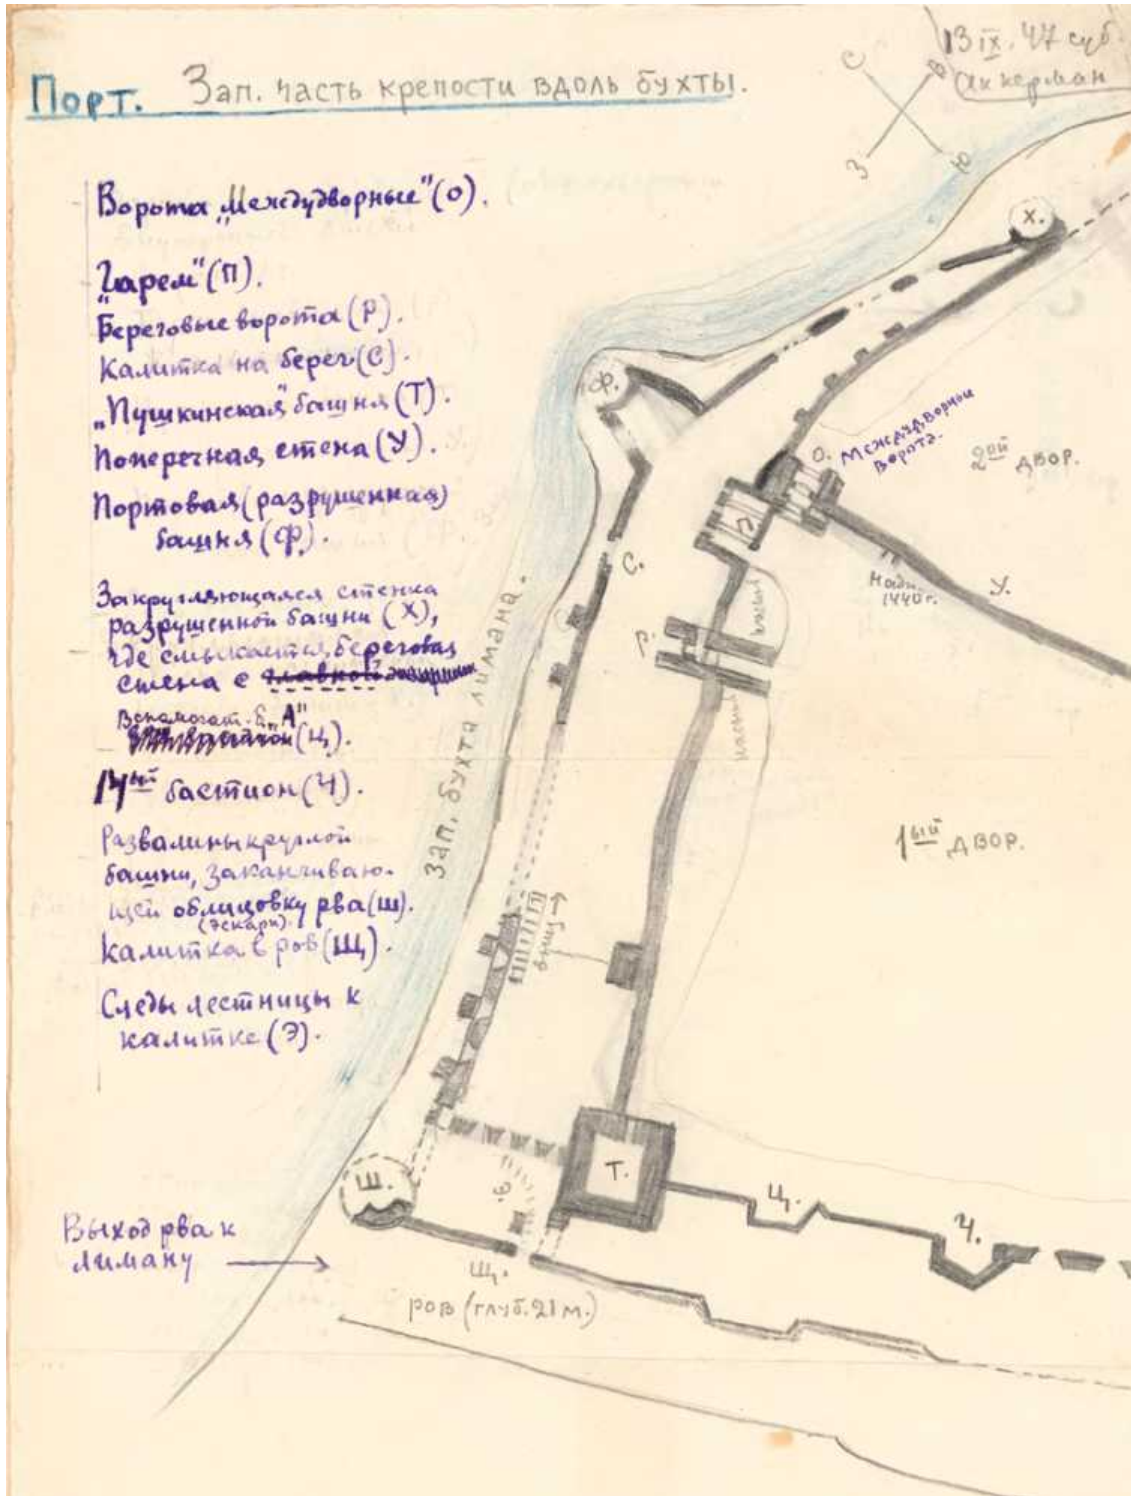 13 IX. 47 суб.
Аккерман
Порт. Зап. часть крепости вдоль бухты.
С
В
З
Ю
Ворота „Междудворные" (О).
„Гарем" (П).
Береговые ворота (Р).
Калитка на берег (С).
„Пушкинская" башня (Т).
Поперечная стена (У).
Портовая (разрушенная)
башня (Ф).
Закругляющаяся стенка
разрушенной башни (Х),
где смыкается береговая
стена с главной
Вспомогат. б. „А"
(Ц).
14ый бастион (Ч).
Развалины круглой
башни, заканчиваю-
щей облицовку рва (Ш).
(эскарп).
Калитка в ров (Щ).
Следы лестницы к
калитке (Э).
Выход рва к
лиману
Х.
Ф.
О. Междудворной
ворота.
2ой двор.
П
С.
Надп.
1440 г.
У.
Р.
насыпь
насыпь
зап. бухта лимана.
1ый двор.
вниз →
Т.
Э.
Ш.
Ц.
Ч.
Щ.
ров (глуб. 21 м.)